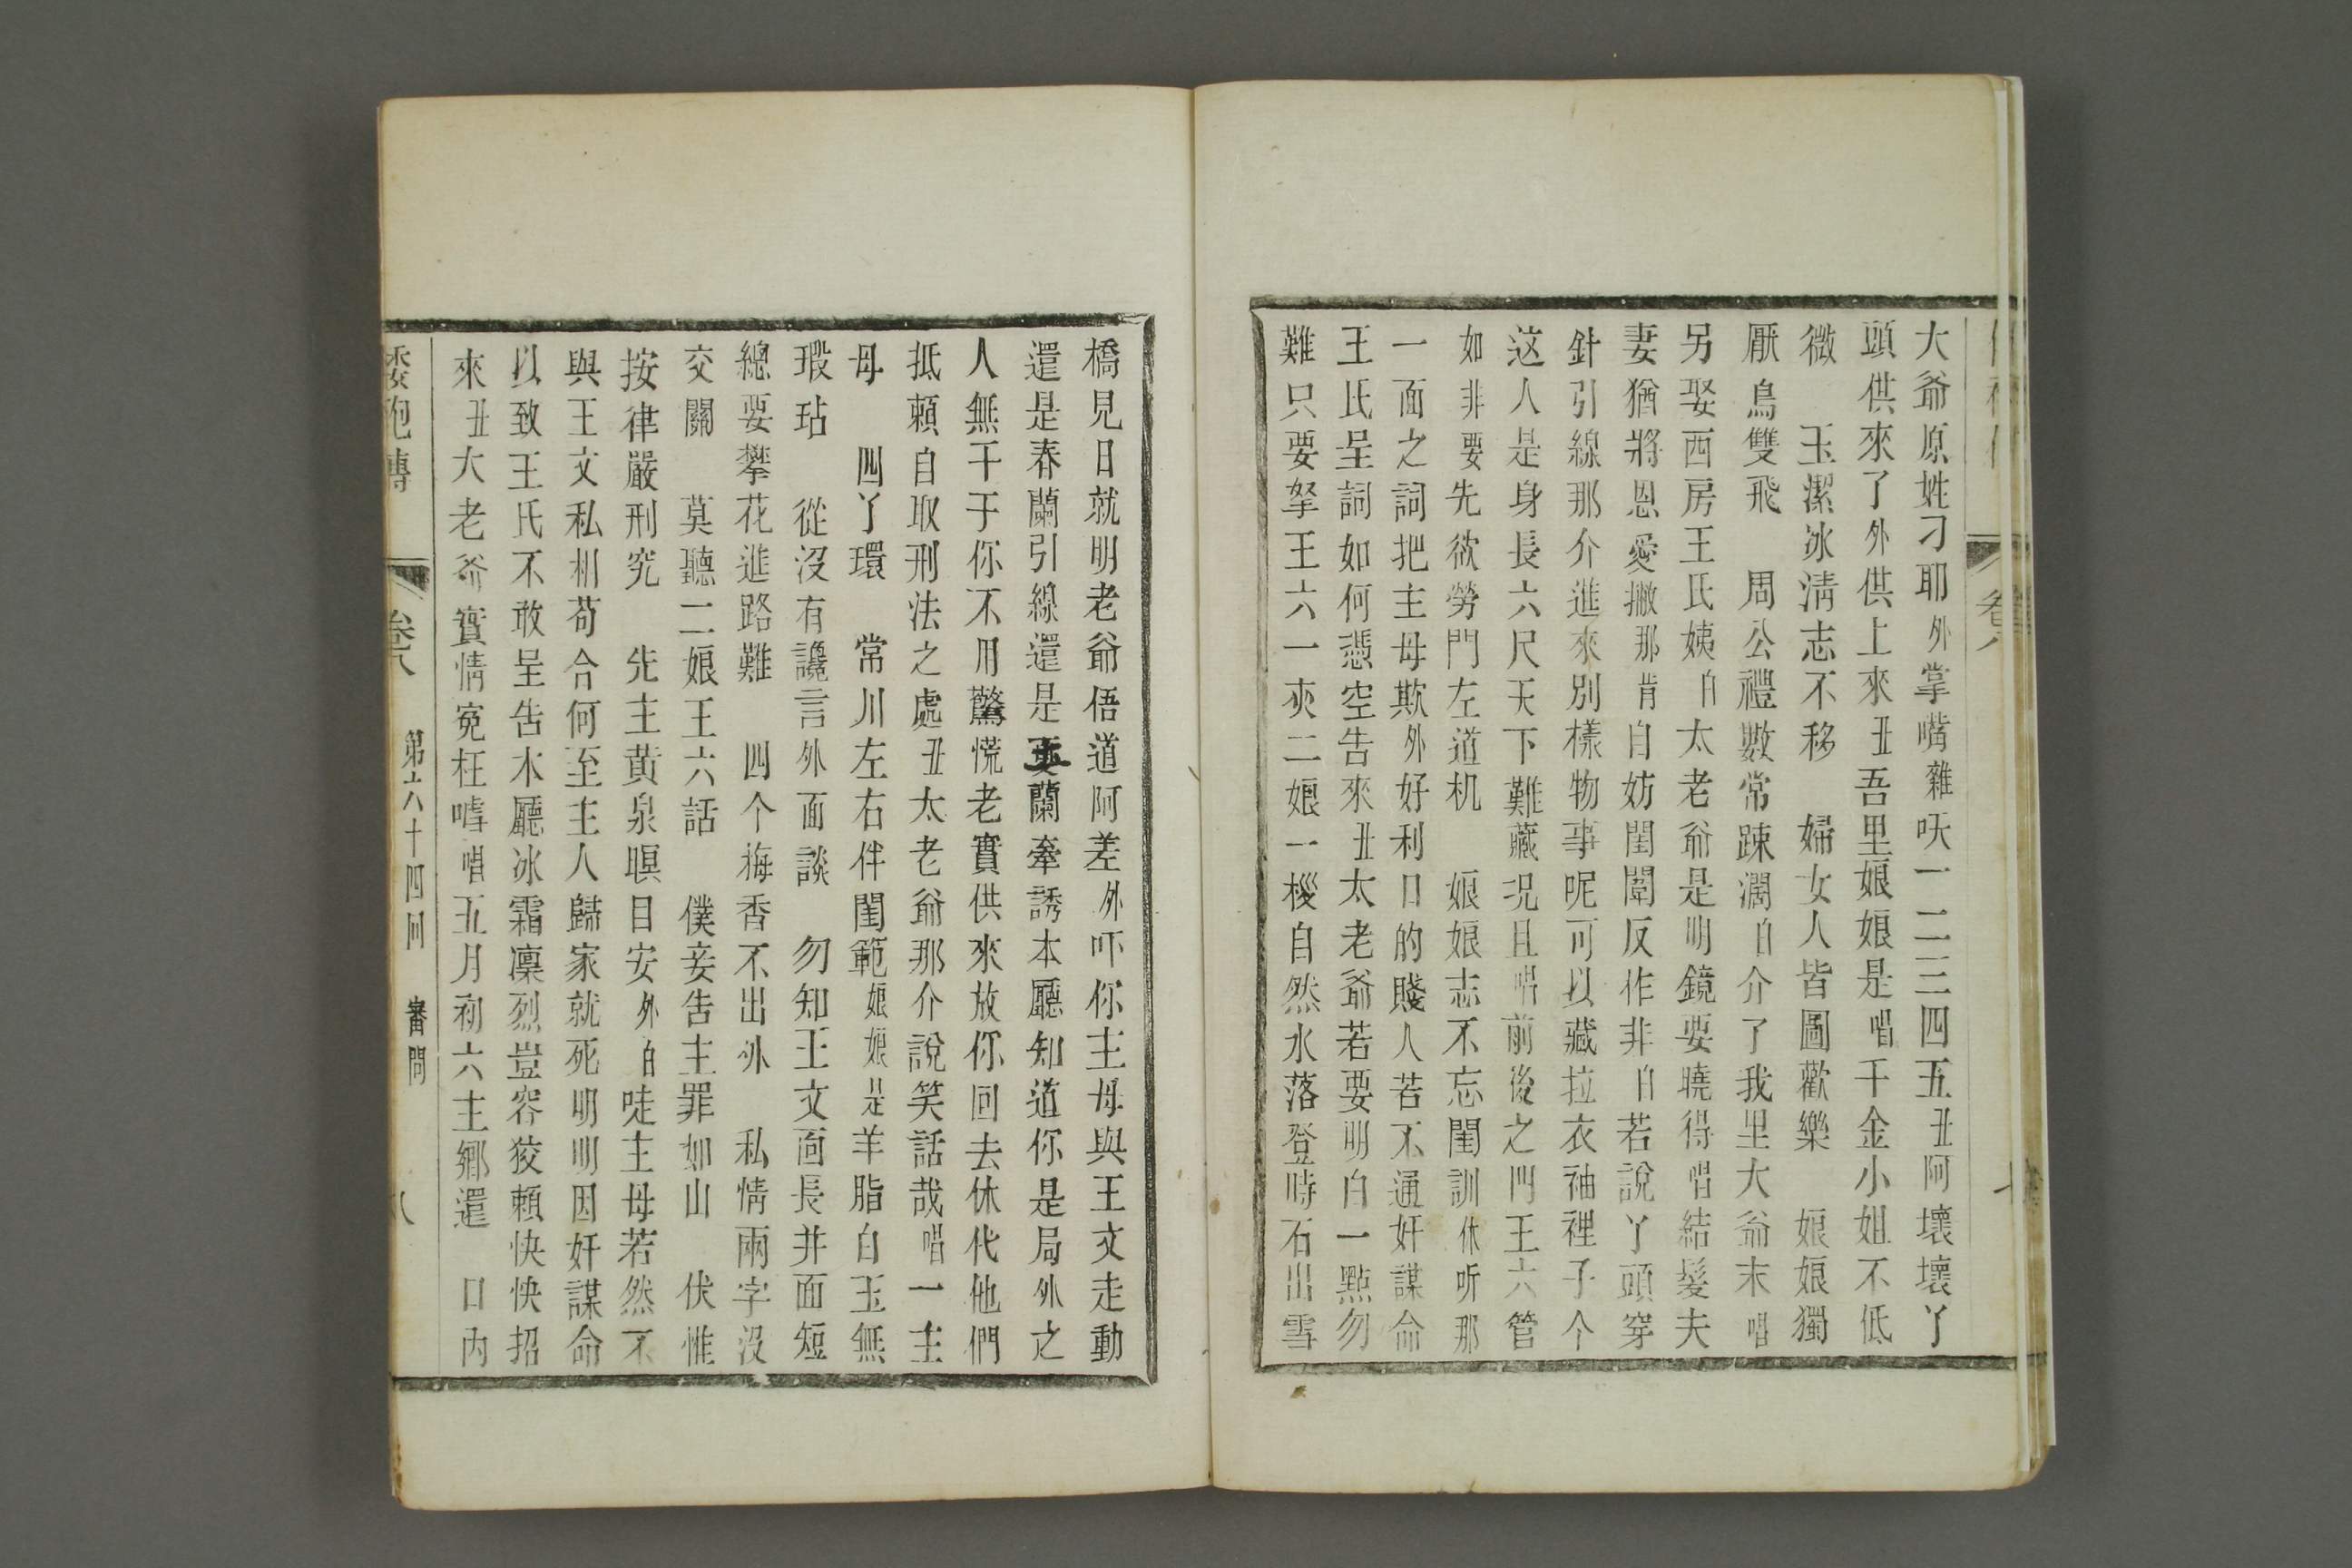 大爺原姓刁耶外掌嘴雜吷一二三四五丑阿壞壞丫
頭供來了外供上來丑吾里娘娘是唱千金小姐不低
微　玉潔冰淸志不移　婦女人皆圖歡樂　娘娘獨
厭鳥雙飛　周公禮數常踈濶白介了我里大爺末唱
另娶西房王氏姨白太老爺是明鏡要曉得唱結髮夫
妻猶將恩愛撇那肯白妨閨閫反作非白若說丫頭穿
針引線那介進來別樣物事呢可以藏拉衣袖裡子个
这人是身長六尺天下難藏况且唱前後之門王六管
如非要先欲勞門左道机　娘娘志不忘閨訓休听那
一面之詞把主母欺外好利口的賤人若不通奸謀命
王氏呈詞如何憑空告來丑太老爺若要明白一點勿
難只要拏王六一夾二娘一椶自然水落登時石出雪
橋見日就明老爺俉道阿差外吓你主母與王文走動
還是春蘭引線還是蘭牽誘本廳知道你是局外之
人無干于你不用驚慌老實供來放你回去休代他們
抵賴自取刑法之處丑太老爺那介說笑話哉唱一主
母　四丫環　常川左右伴閨範娘娘是羊脂白玉無
瑕玷　從沒有讒言外面談　勿知王文面長井面短
總要攀花進路難　四个梅香不出外　私情兩字沒
交關　莫聽二娘王六話　僕妾告主罪如山　伏惟
按律嚴刑究　先主黃泉瞑目安外白唗主母若然不
與王文私相苟合何至主人歸家就死明明因奸謀命
以致王氏不敢呈告本廳冰霜凜烈豈容狡賴快快招
來丑大老爺實情寃枉嘑唱五月初六主鄉還　口內
倭袍傳　卷八　第六十四回　審問　八